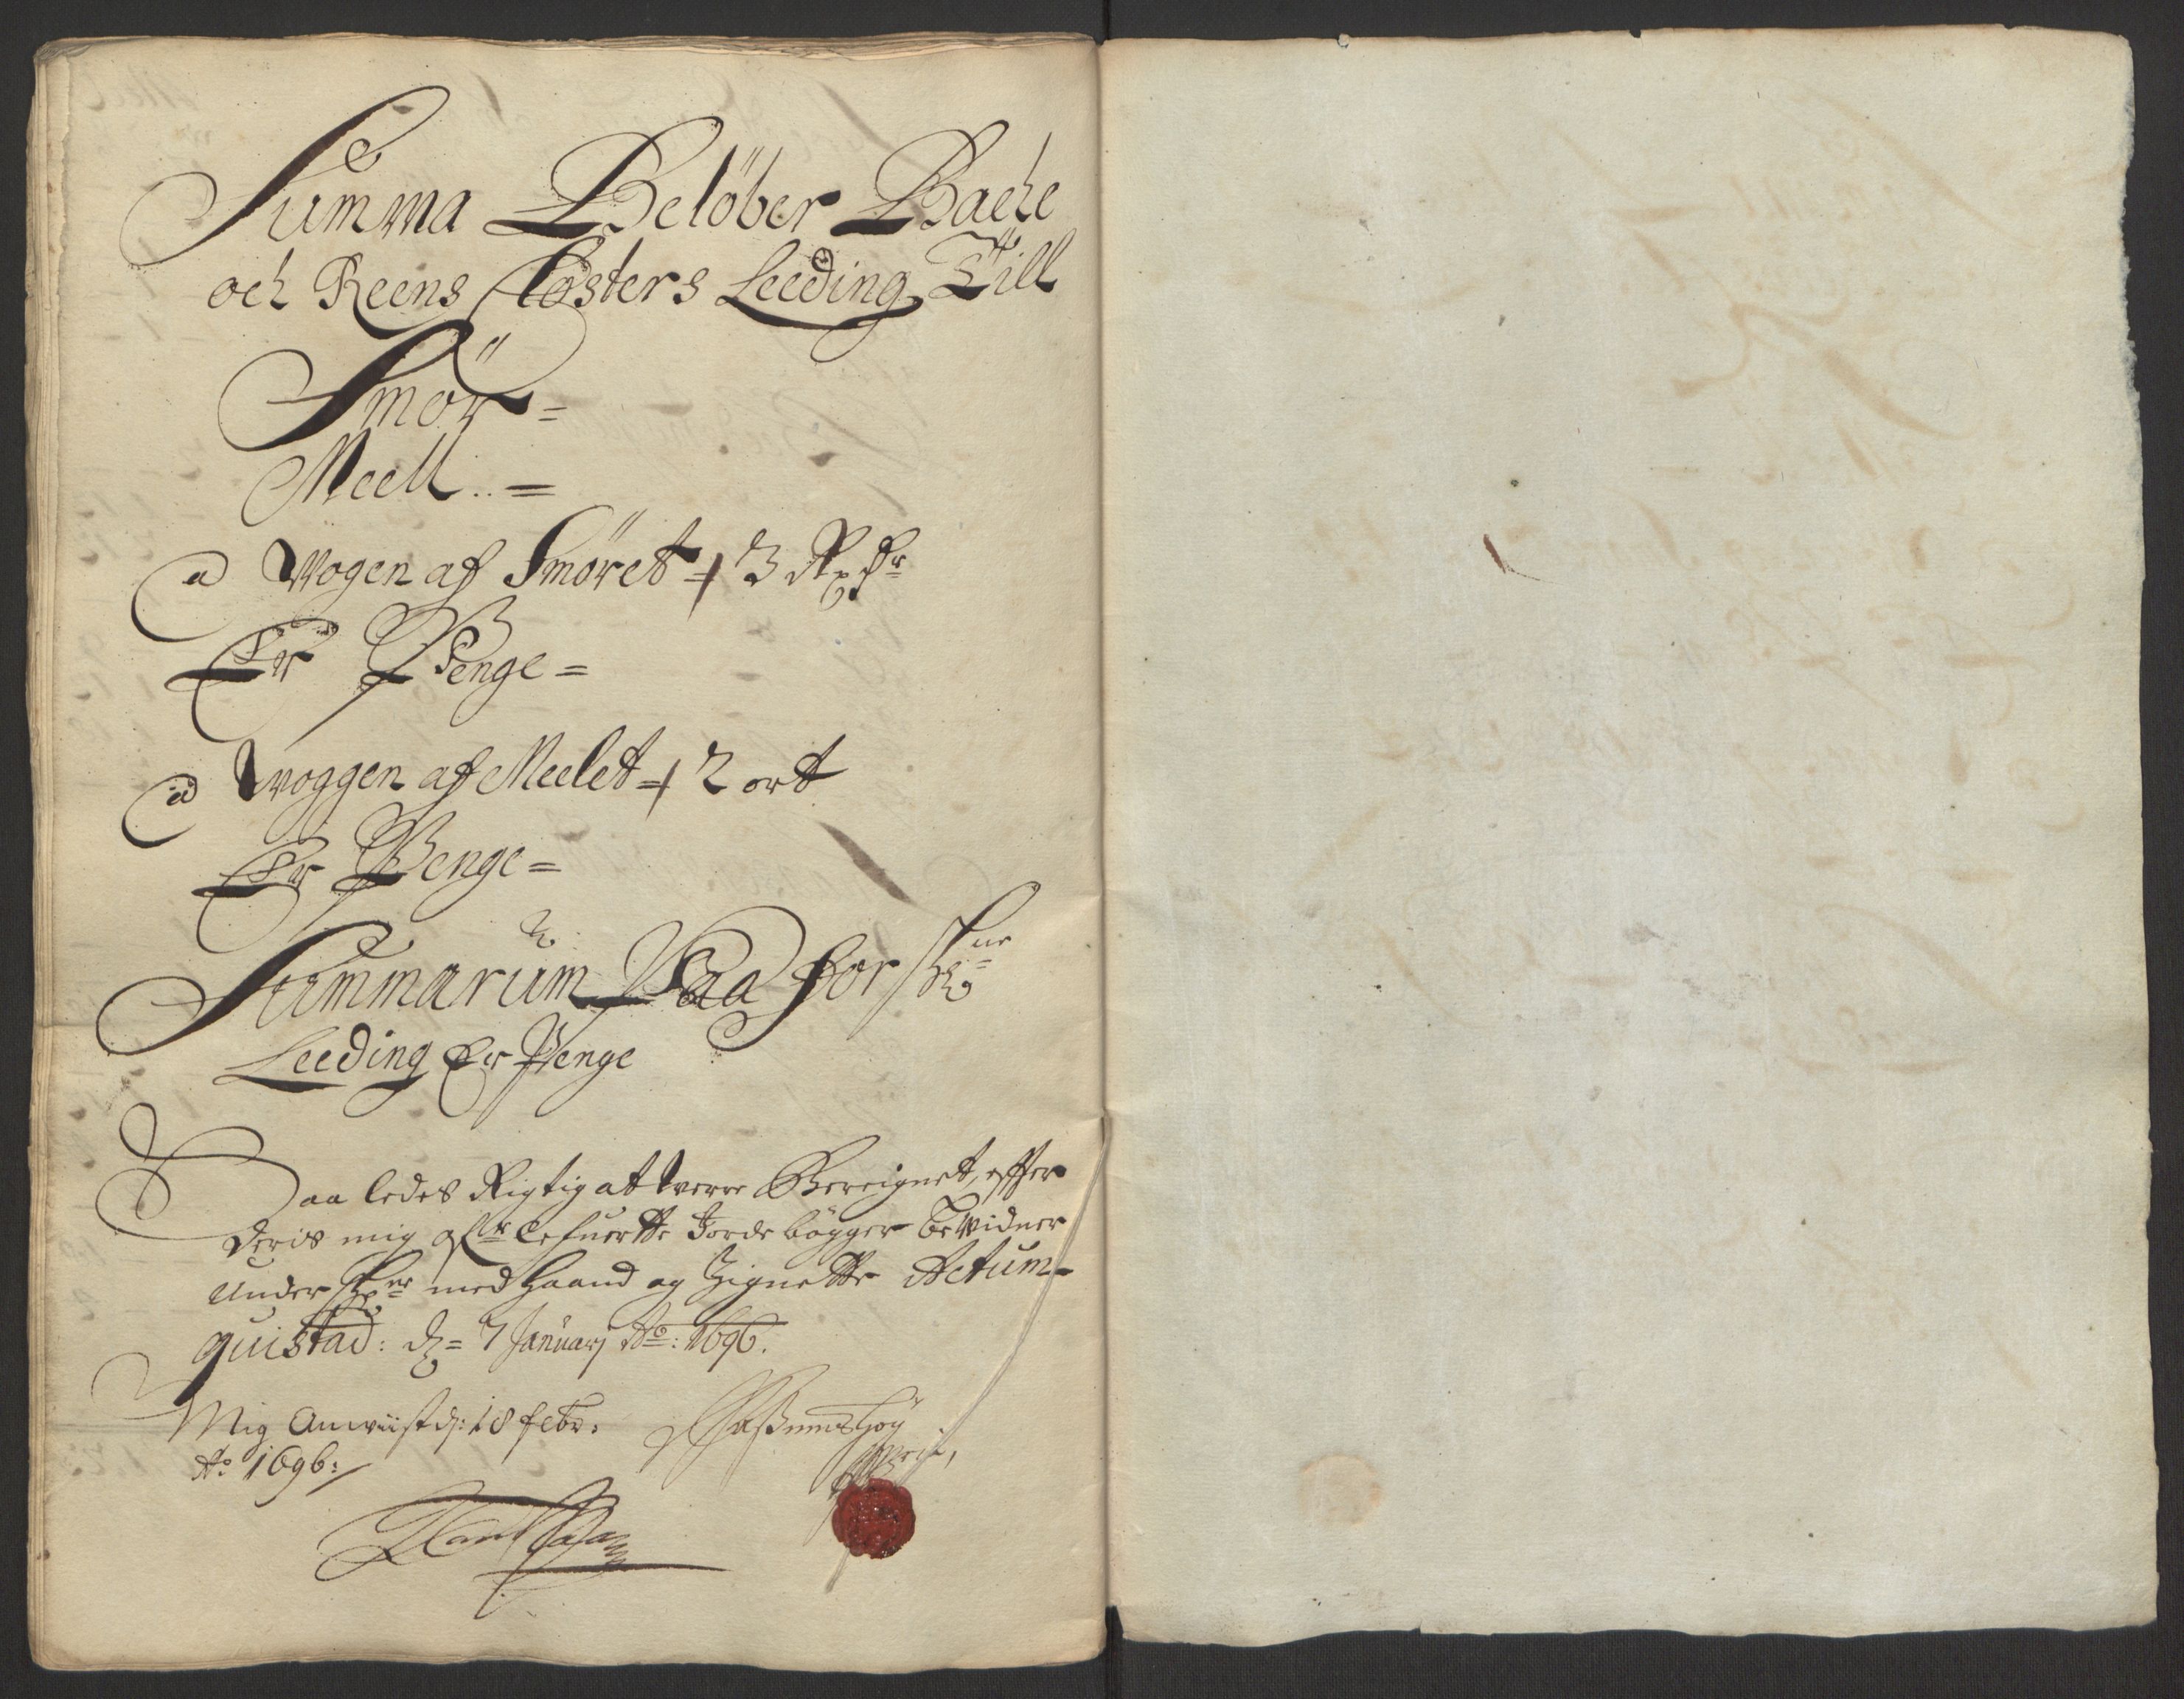 Summa Belöber Backe
och Reens Closters Leeding Till
Smör =
Meell .. =
a Wogen af Smöret = 3 Rx
Er Penge =
a Woggen af Meelet = 2 ort
Er Penge =
Summarum Paa for
Leeding Er Penge
Saaledes Rigtig at were Beregnet, effter
deris mig Jordebøgger bewidner
Under med Haand og Zignette Actum
quistad: d = 7 Januarj Ao: 1696.
Mig Anwiist d: 18 Febr:
Ao 1696: